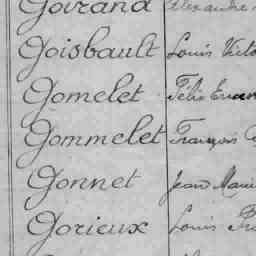 Goirand Alexandre
Goisbault Louis Victo
Gomelet Félix
Gommelet François
Gonnet Jean Marie
Gorieux Louis